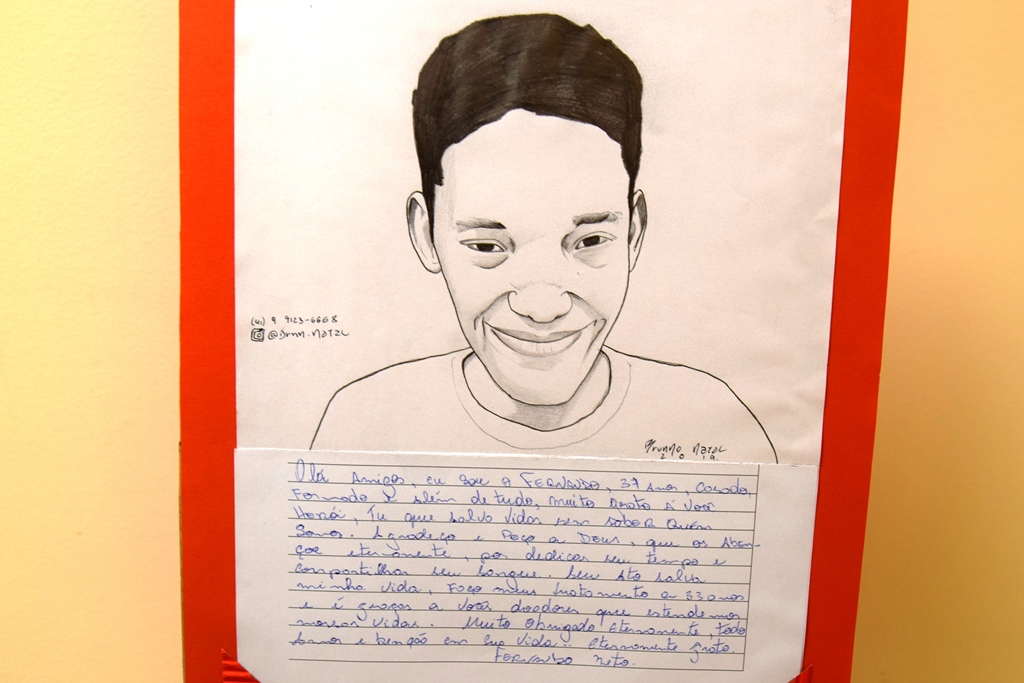 (41) 9 9123-6668
@Brnn.Natal
Brunno Natal
2019
Olá Amigos, eu sou o Fernando, 37 anos, Casado,
Formado e além de tudo, muito grato á você
Herói, Tu que salva vidas sem saber quem
somos. Agradeço e Peço a Deus, que os Aben-
çoe eternamente, por dedicar seu tempo e
compartilhar seu sangue. Seu ato salva
minha vida, Faço meus tratamento a 33 anos
e é graças a vocês doadores que estendemos
nossas vidas. Muito Obrigado eternamente, todo
amor e benção em sua vida!! eternamente grato.
Fernando Neto.